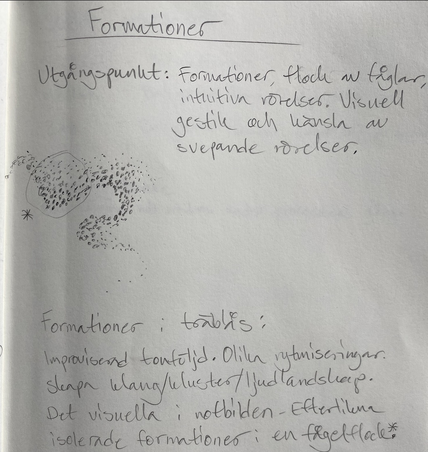 Formationer
Utgångspunkt: Formationer, flock av fåglar,
intuitiva rörelser. Visuell
gestik och känsla av
svepande rörelser.
*
Formationer i träblås:
Improviserad tonföljd. Olika rytmiseringar.
Skapa klang/kluster/ljudlandskap.
Det visuella i notbilden - Efterlikna
isolerade formationer i en fågelflock*